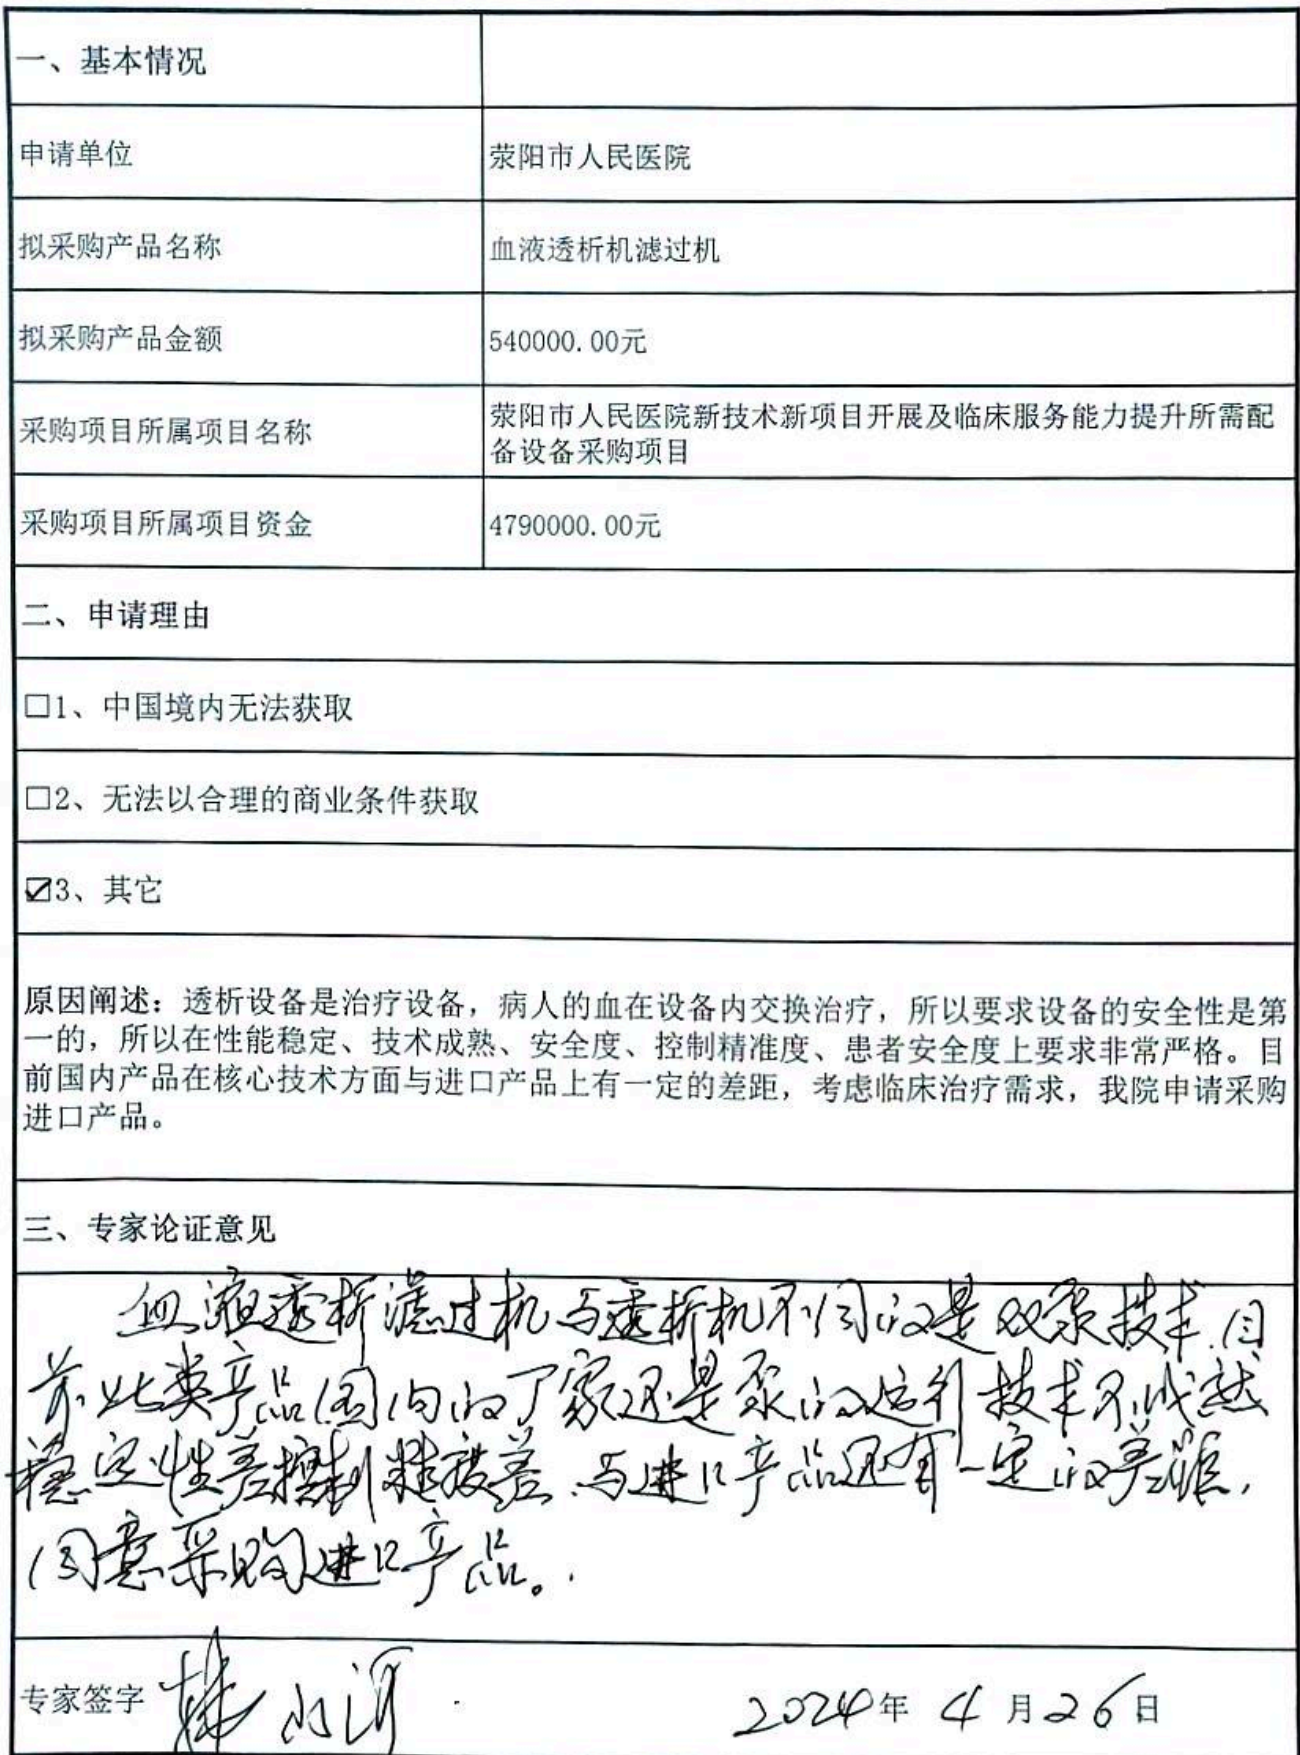 一、基本情况
申请单位
荥阳市人民医院
拟采购产品名称
血液透析机滤过机
拟采购产品金额
540000.00元
采购项目所属项目名称
荥阳市人民医院新技术新项目开展及临床服务能力提升所需配
备设备采购项目
采购项目所属项目资金
4790000.00元
二、申请理由
□1、中国境内无法获取
□2、无法以合理的商业条件获取
☑3、其它
原因阐述：透析设备是治疗设备，病人的血在设备内交换治疗，所以要求设备的安全性是第
一的，所以在性能稳定、技术成熟、安全度、控制精准度、患者安全度上要求非常严格。目
前国内产品在核心技术方面与进口产品上有一定的差距，考虑临床治疗需求，我院申请采购
进口产品。
三、专家论证意见
血液透析滤过机与透析机不同的是双泵技术，目
前此类产品国内的厂家还是泵的运行技术不成熟
稳定性差控制精度差，与进口产品还有一定的差距，
同意采购进口产品。
专家签字
2024年4月26日